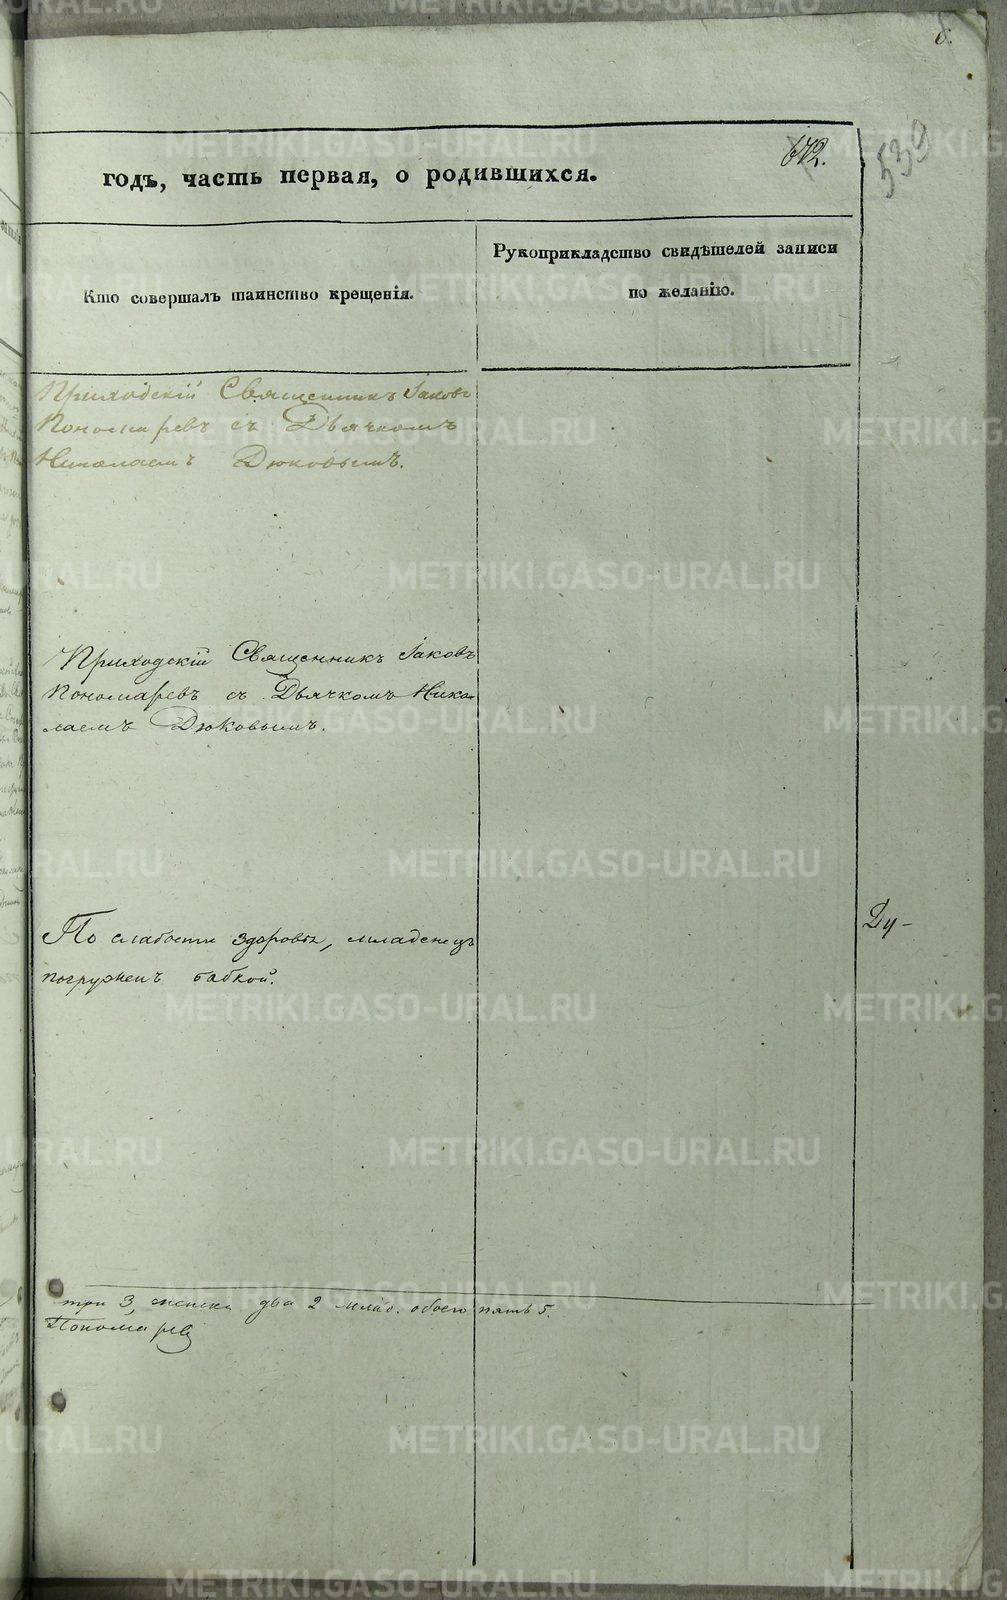 6.
672.
539
годъ, часть первая, о родившихся.
Кто совершалъ таинство крещенія.
Рукоприкладство свидѣтелей записи
по желанію.
Приходскій Священникъ Іаковъ
Пономаревъ съ Дьячкомъ
Николаемъ Дюковымъ.
Приходскій Священникъ Іаковъ
Пономаревъ съ Дьячкомъ Нико-
лаемъ Дюковымъ.
По слабости здоровья, младенецъ
погруженъ бабкой.
Ду-
три 3, женска два 2 млад. обоего пять 5.
Пономарев
METRIKI.GASO-URAL.RU